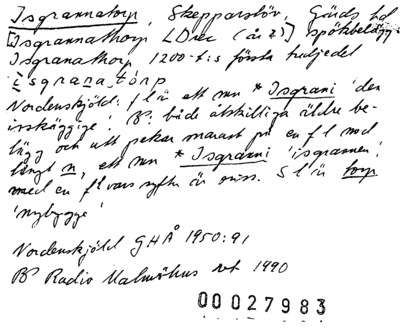 Isgrannatorp, Skepparslöv, Gärds hd
[Isgrannathorp LDrec (år 2)] spökbelägg
Isgranathorp 1200-t:s första tredjedel
ˈisgranaˌtorp
Nordenskjöld: f l ä ett mn *Isgrani 'den
isskäggige'. BP: både åtskilliga äldre be-
lägg och utt pekar snarast på en f l med
långt n, ett mn *Isgranni 'isgrannen',
med en f l vars syftn är oviss. S l ä torp
'nybygge'
Nordenskjöld GHÅ 1950:91
BP Radio Malmöhus vt 1990
00027983